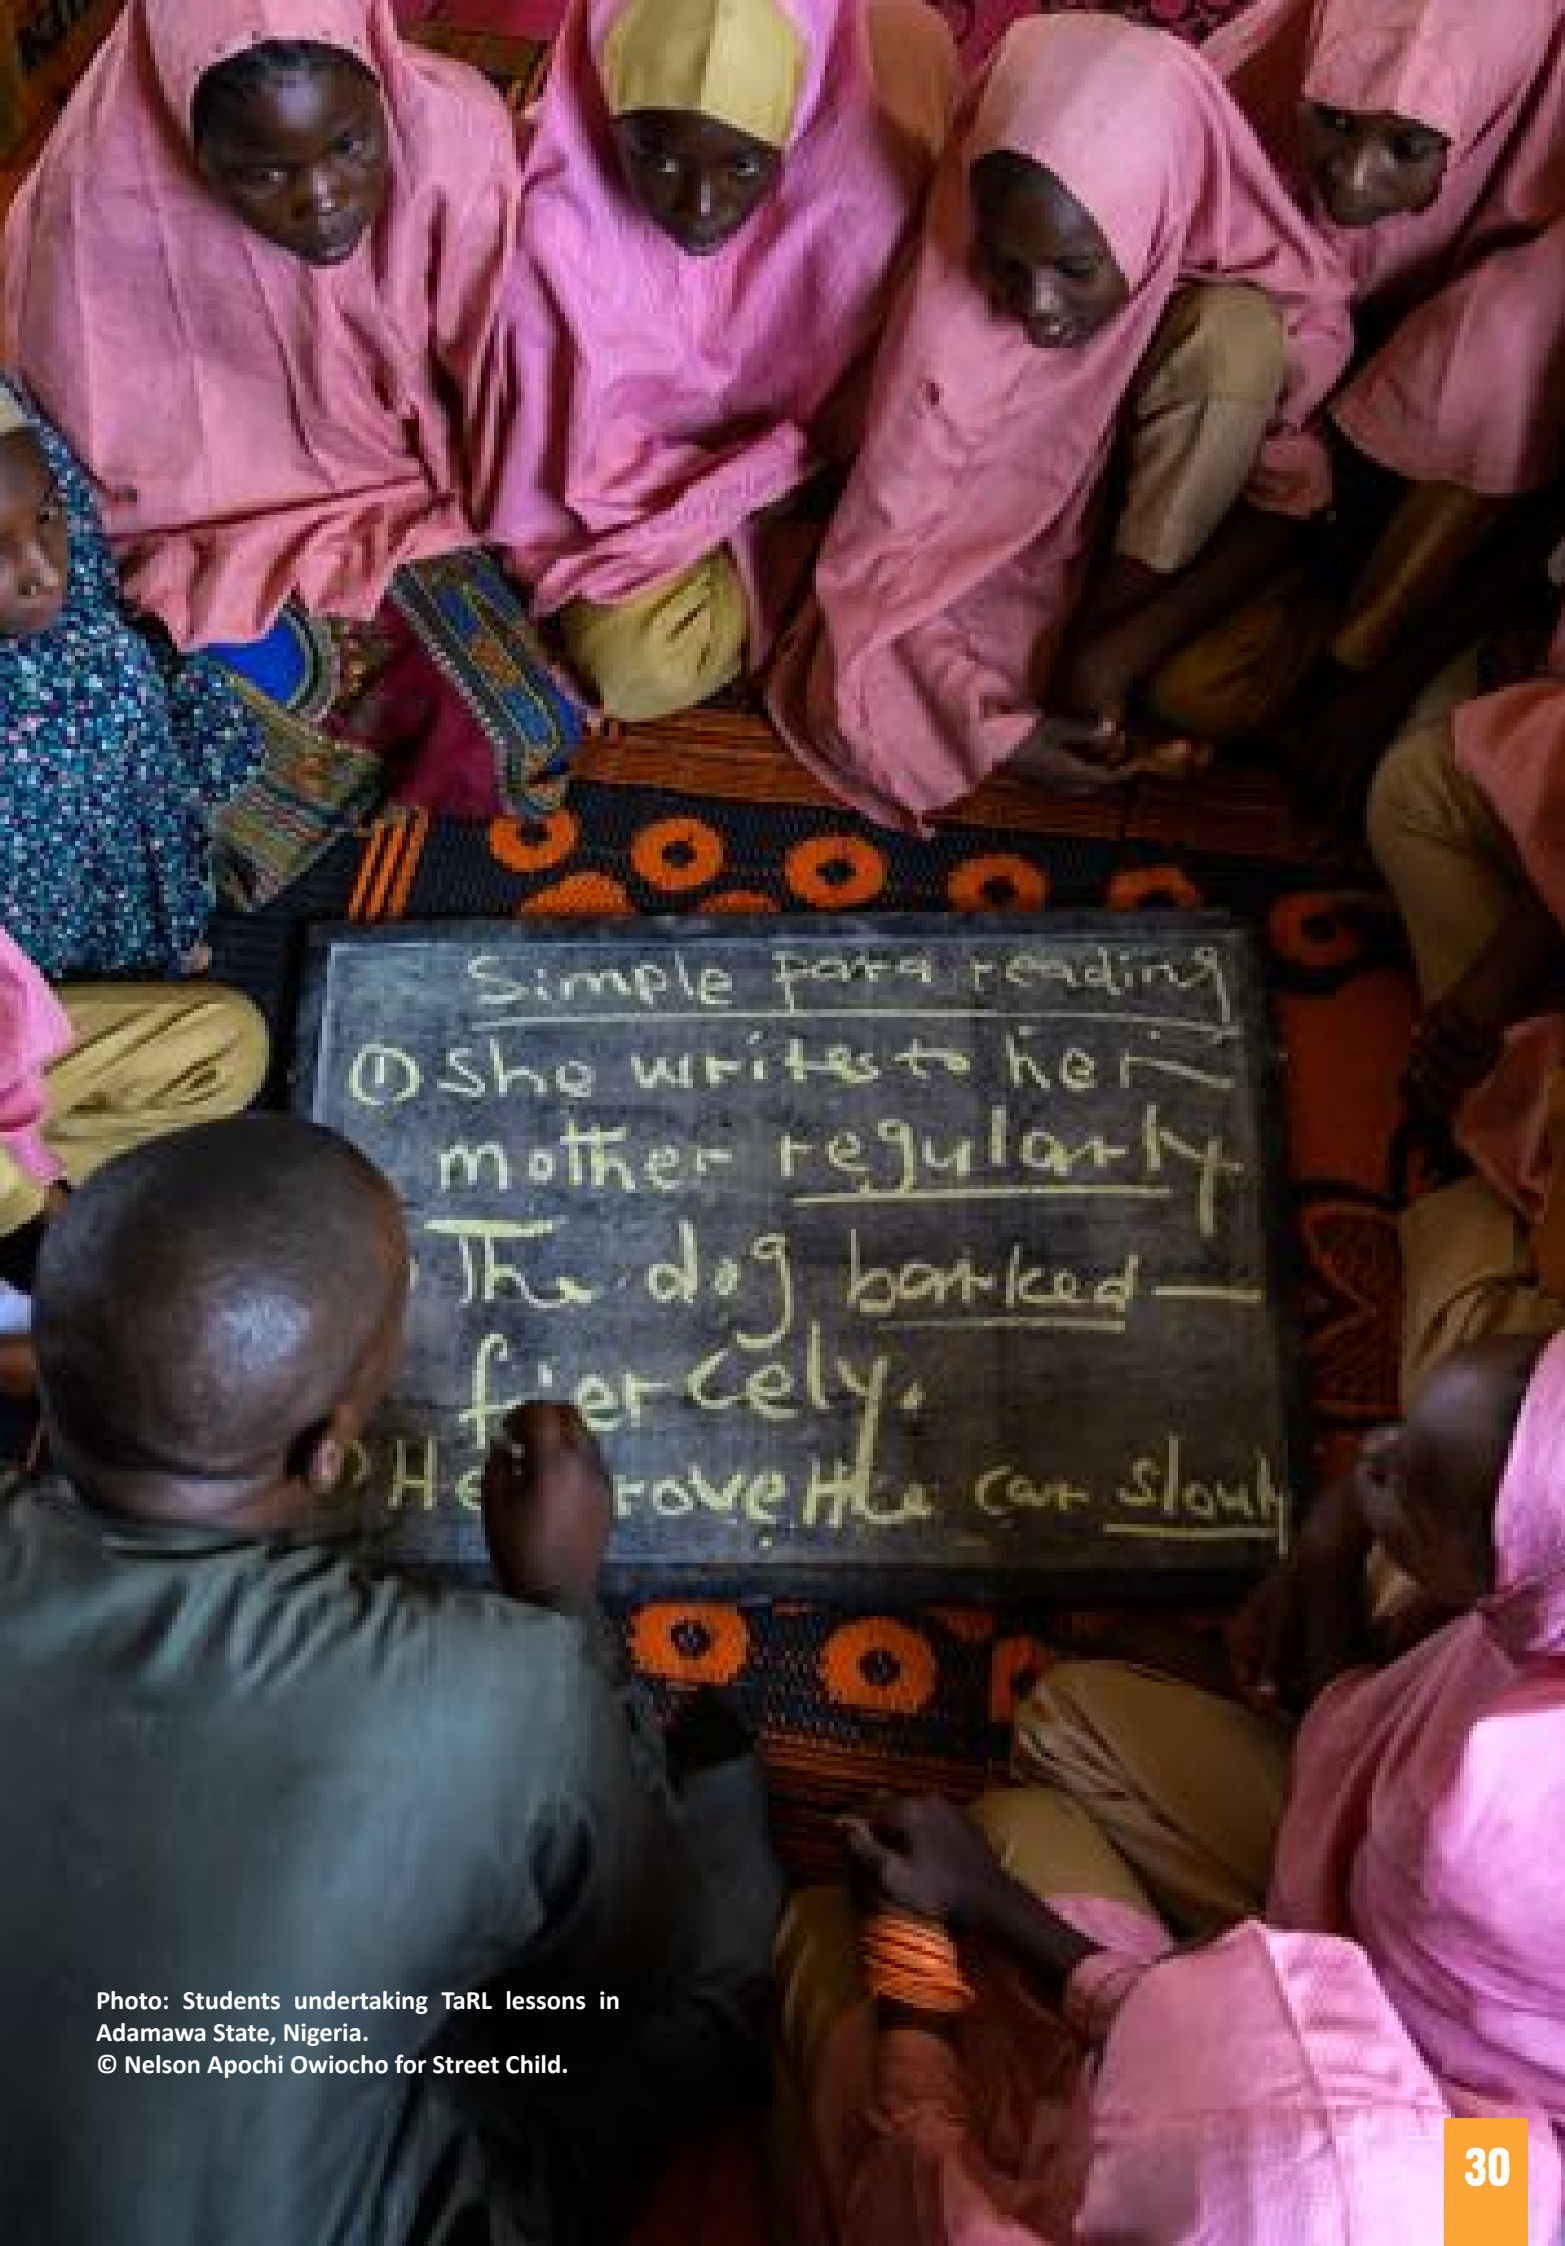 Simple para reading
① She writes to her
mother regularly
The dog barked
fiercely.
He drove the car slowly
Photo: Students undertaking TaRL lessons in
Adamawa State, Nigeria.
© Nelson Apochi Owiocho for Street Child.
30